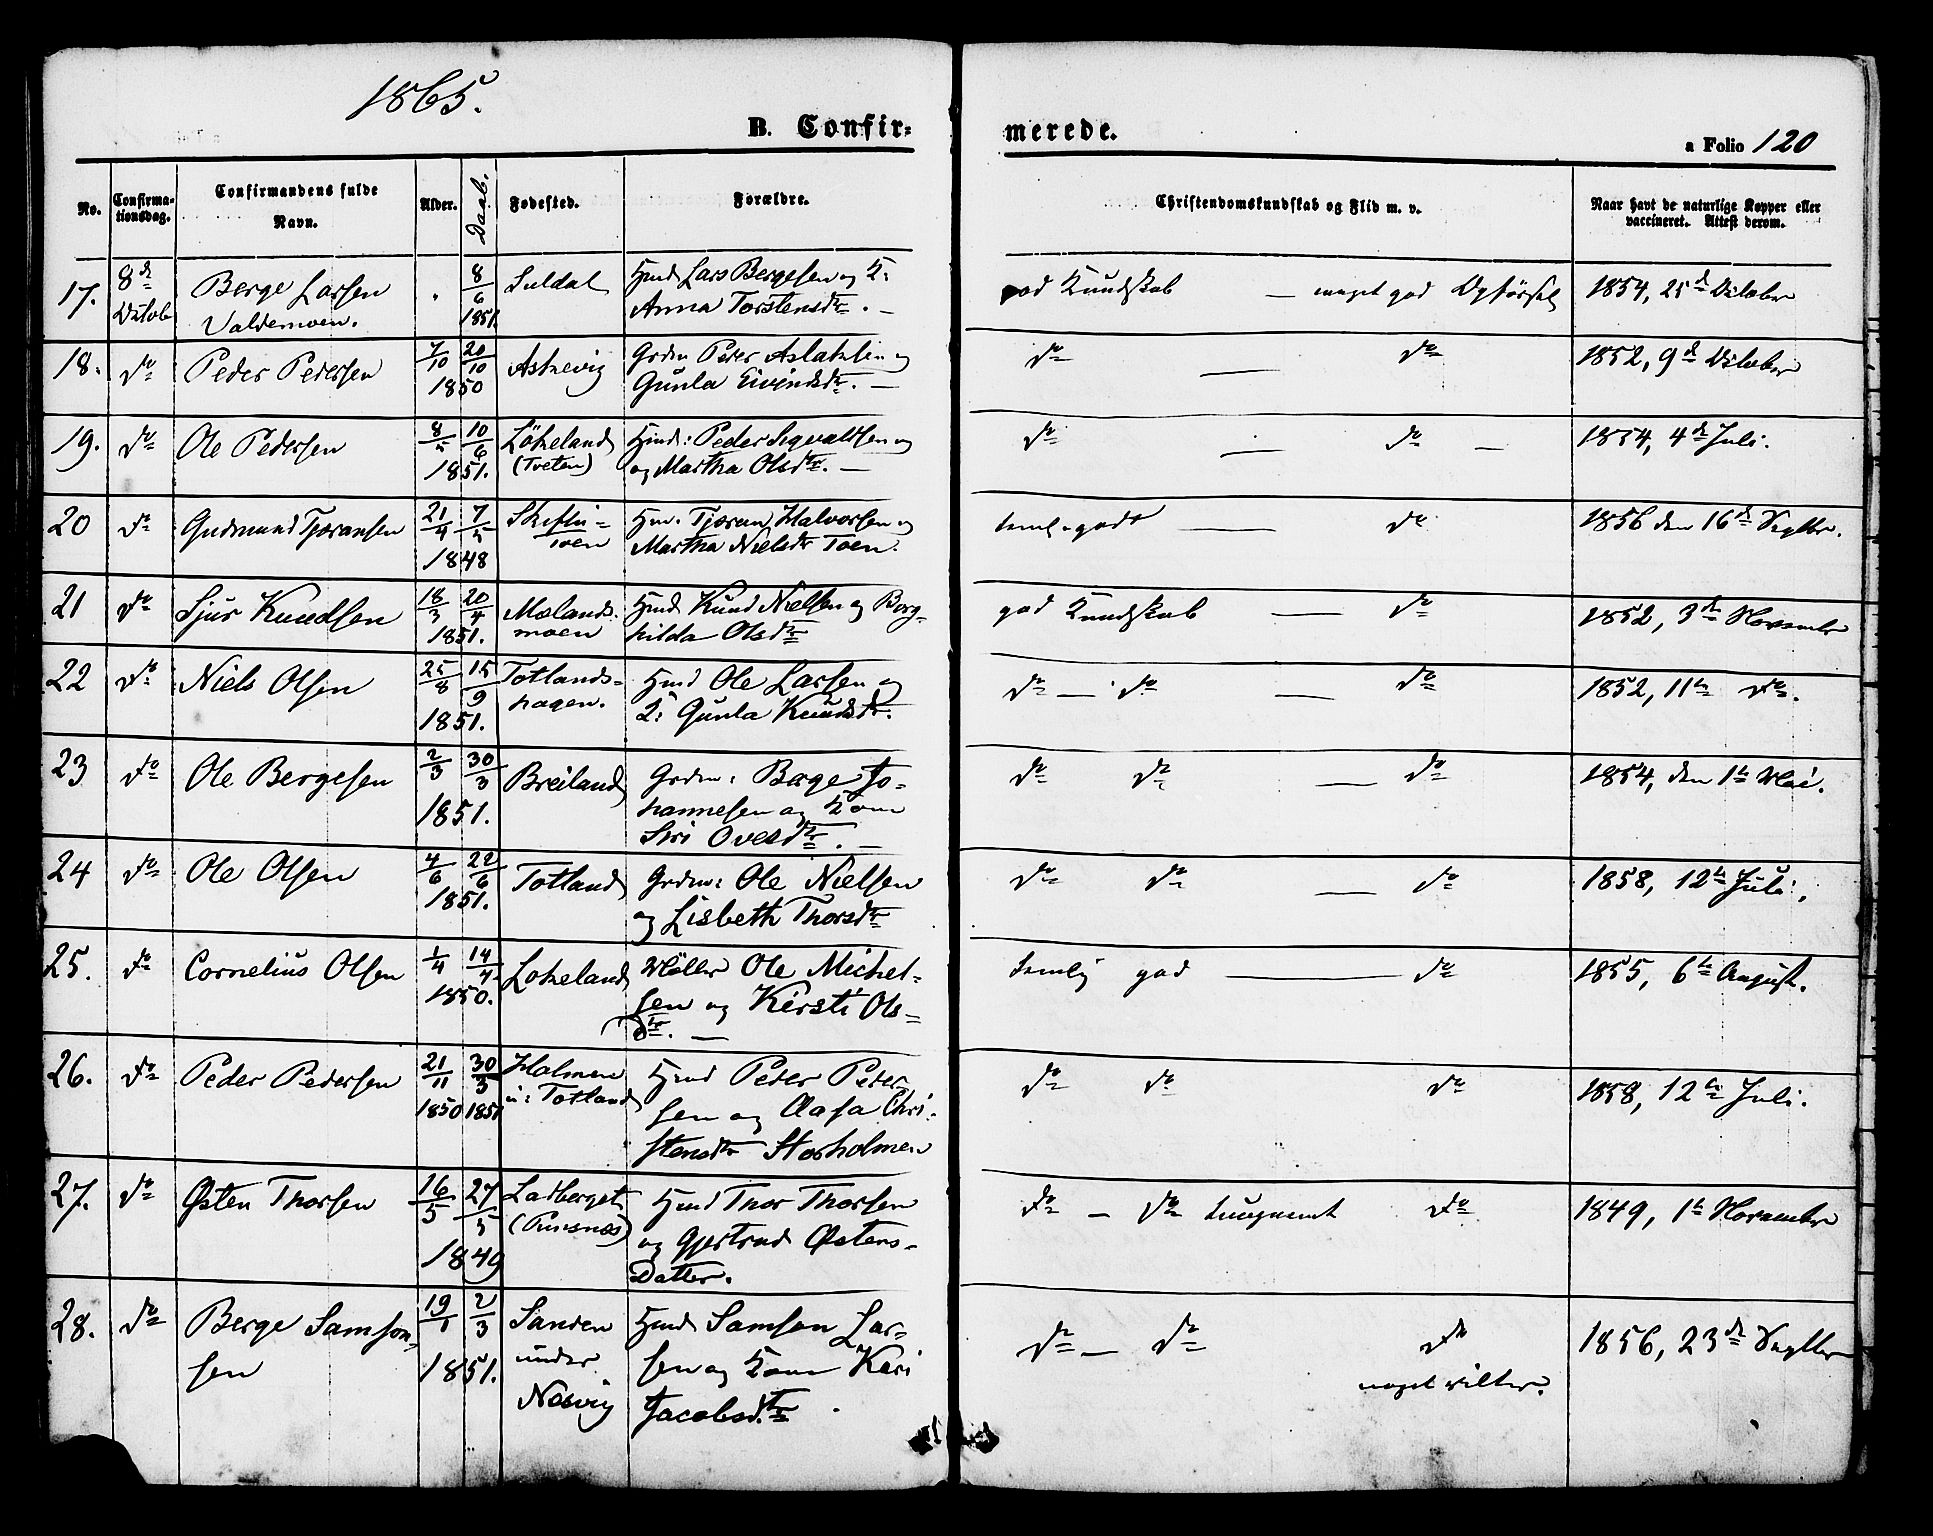 1865.
B. Confir=
merede.
a Folio 120
No. Confirma=tionsdag. Confirmandens fulde Navn. Alder. Daab. Fødested. Forældre. Christendomskundskab og Flid m. v. Naar havt de naturlige Kopper eller vaccineret. Attest derom.
17. 8de Octob Berge Larsen 8/6 Suldal Hmd Lars Bergesen og K: god Kundskab — meget god Opførsel 1854, 25de October
Valdemoen. 1851. Anna Torstensdtr. —
18. do Peder Pedersen 7/10 20/10 Askevig Grdm Peder Aslaksen og do — do 1852, 9de October
1850 Gunla Eivindsdtr. —
19. do Ole Pedersen 8/5 10/6 Løkeland Hmd: Peder Sigvaldsen og do — do — 1854, 4de Juli.
1851. (Tveten) og Martha Olsdtr. —
20 do Gudmund Tjøransen 21/4 7/5 Hm. Tjøran Halvorsen og temel. godt — do 1856 den 16de Septbr.
1848 Martha Nielsdtr Toen.
21 do Sjur Knudsen 18/3 20/4 Mælands= Hmd Knud Nielsen og Borg= god Kundskab — do 1852, 3de November
1851. moen hilda Olsdtr
22 do Niels Olsen 25/8 15/9 Totlands= Hmd Ole Larsen og do — do — do 1852, 11te do.
1851. hagen. K: Gunla Knudsdtr.
23 do Ole Bergesen 2/3 30/3 Breiland Grdm: Berge Jo= do do — do 1854, den 1te Mai.
1851. hannesen og Kone
Siri Ovesdtr. —
24 do Ole Olsen 4/6 22/6 Totland Grdm: Ole Nielsen do do — do 1858, 12te Juli.
1851. og Lisbeth Thorsdtr
25. do Cornelius Olsen 1/4 14/4 Løkeland Møller Ole Michel= temlig god — do 1855, 6te August.
1850. sen og Kirsti Ols=
dtr. —
26. do Peder Pedersen 21/11 30/3 Holmen Hmd Peder Peder= do do do 1858, 12te Juli.
1850 1851 u: Totland sen og Aasa Chri=
stensdtr Storholmen
27. do Østen Thorsen 16/5 27/5 Hmd Thor Thorsen do — do do 1849, 1te November
1849 og Gjertrud Østens=
Datter.
28. do Berge Samson= 19/1 2/3 Sanden Hmd Samson Lar= do — do do 1856, 23de Septbr
sen 1851. under sen og Kone Kari noget vilter.
Nesvig Jacobsdtr.